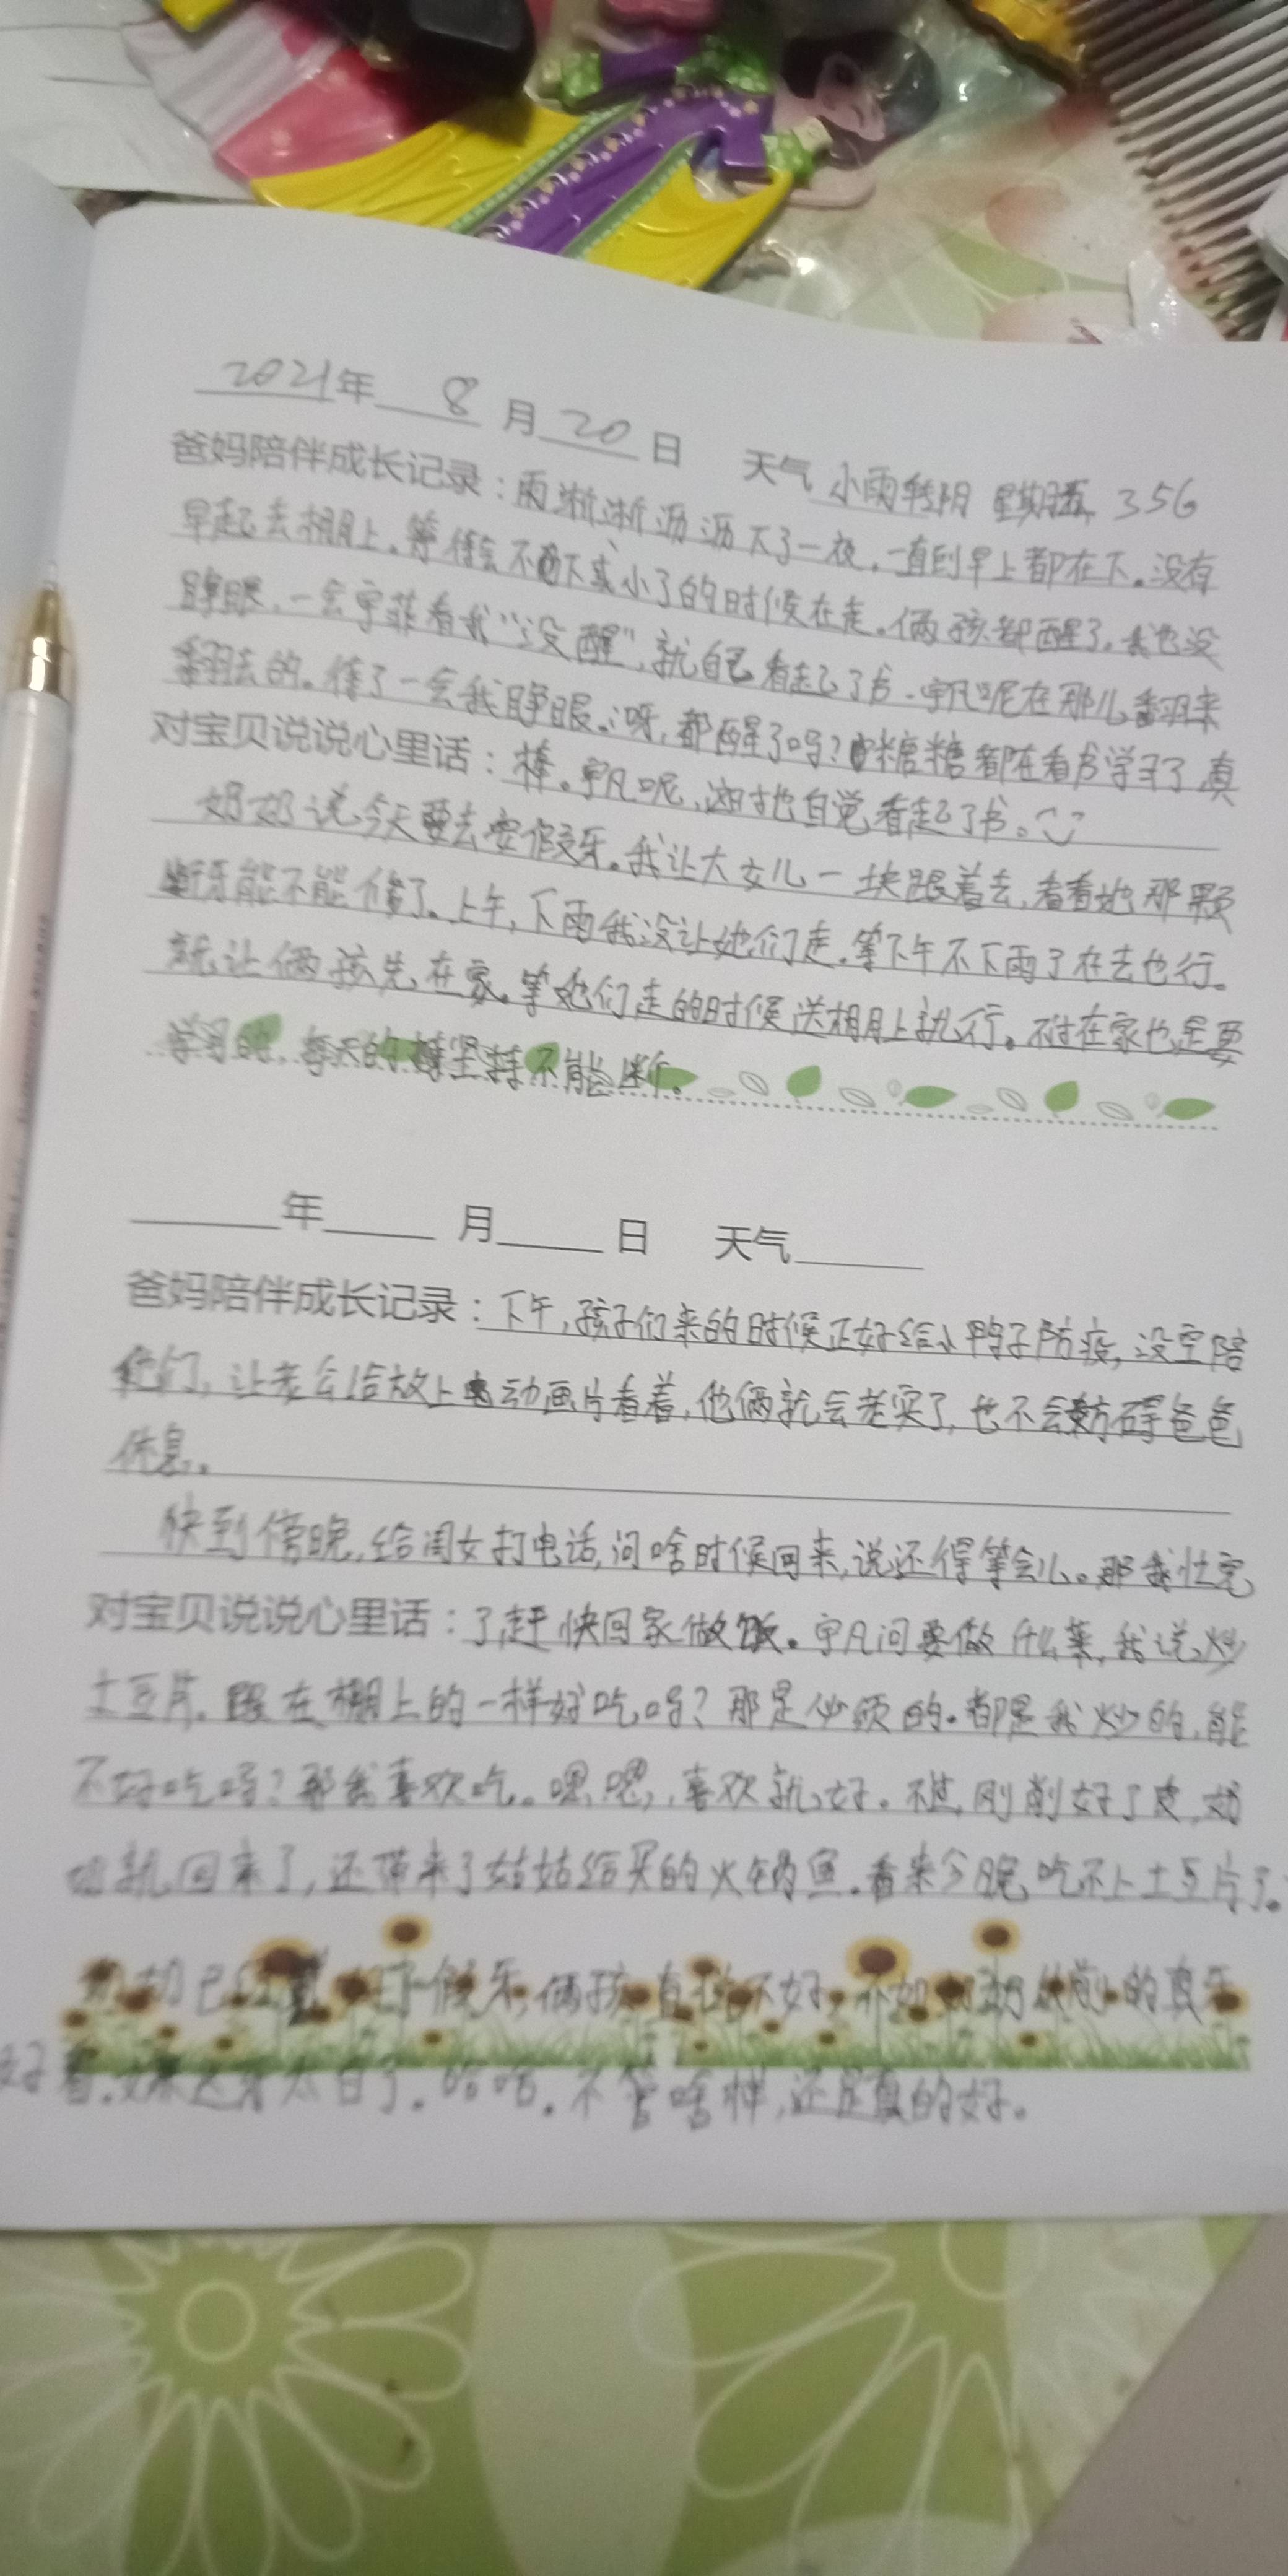 2021年 8 月 20 日 天气 小雨转阴 星期五 356
爸妈陪伴成长记录：雨淅淅沥沥下了一夜，一直到早上都在下。没有
早起去棚上。等待会不下或小了的时候在走。俩孩都醒了，我也没
睁眼，一会宇菲看我“没醒”，就自己看起了书．宇凡呢在那儿翻来
翻去的。待了一会我睁眼：呀，都醒了吗？糖糖都在看书学习了真
对宝贝说说心里话：棒。宇凡呢，这时也自觉看起了书。
奶奶说今天要去安假牙。我让大女儿一块跟着去，看看她那颗
断牙能不能修了。上午，下雨我没让她们走。等下午不下雨了在去也行。
就让俩孩先在家。等她们走的时候送棚上就行。不过在家也是要
学习的，每天的坚持不能断。
年 月 日 天气
爸妈陪伴成长记录：下午，孩子们来的时候正好给小鸭子防疫，没空陪
他们，让老公给放上动画片看着，他俩就会老实了，也不会妨碍爸爸
休息。
快到傍晚，给闺女打电话，问啥时候回来，说还得等会儿。那我忙完
对宝贝说说心里话：了，赶快回家做饭。宇凡问要做什么菜，我说，炒
土豆片。跟在棚上的一样好吃吗？那是必须的。都是我炒的，能
不好吃吗？那我喜欢吃。嗯，嗯，喜欢就好。不过，刚削好了皮，奶
奶就回来了，还带来了姑姑给买的火锅鱼。看来今晚吃不上土豆片了。
奶奶已经 好了假牙，俩孩 说不好，不如奶奶以前的真牙
好看， 这牙太白了．哈哈．不管啥样，还是真的好。